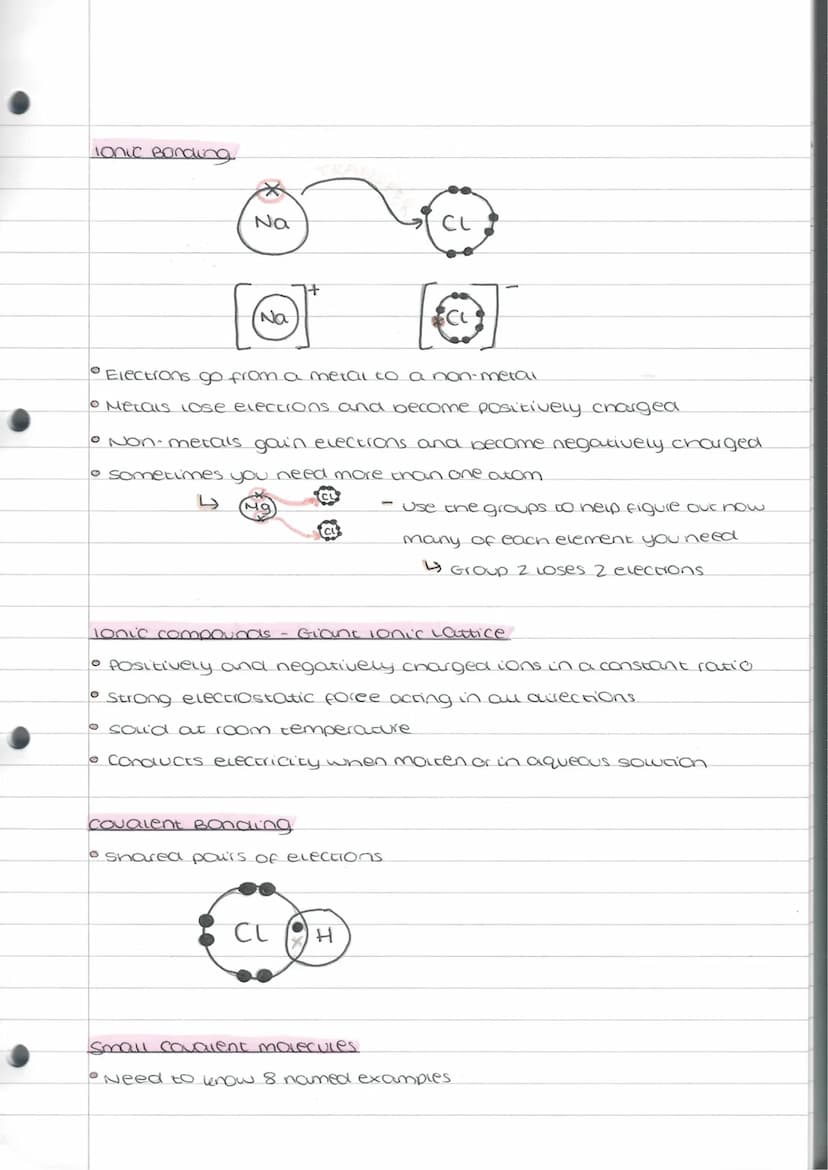 Ionic Bonding
TRANSFER
Na Cl
[Na]+ [Cl]-
• Electrons go from a metal to a non-metal
• Metals lose electrons and become positively charged
• Non-metals gain electrons and become negatively charged
• Sometimes you need more than one atom
↳ Mg Cl - Use the groups to help figure out how
Cl many of each element you need
↳ Group 2 loses 2 electrons
Ionic compounds - Giant ionic Lattice
• Positively and negatively charged ions in a constant ratio
• Strong electrostatic force acting in all directions
• Solid at room temperature
• Conducts electricity when molten or in aqueous solution
Covalent Bonding
• Shared pairs of electrons
Cl H
Small covalent molecules
• Need to know 8 named examples